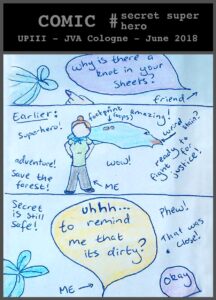 COMIC # secret super hero
UPIII - JVA Cologne - June 2018
why is there a
knot in your
sheets?
friend
Earlier:
Superhero!
footprint
amazing!
oops!
weird stain?
adventure!
wow!
ready
fight for
justice!
Save the
forest!
ME
Secret
is still
Safe!
uhhh...
to remind
me that
its dirty?
Phew!
That was
close!
ME
Okay